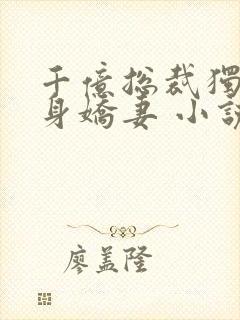 千億總裁獨
身嬌妻 小說
廖盖隆